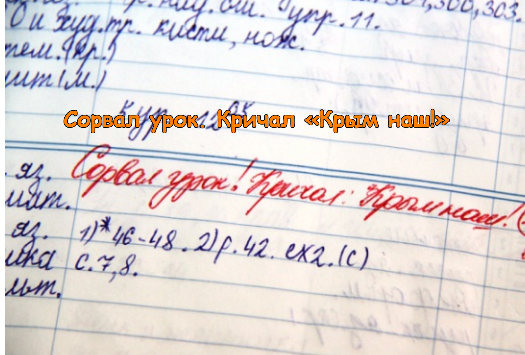 упр. 11.
О и худ.тр. кисти, нож.
тем. (кр.)
Сорвал урок. Кричал «Крым наш!»
яз. Сорвал урок! Кричал: Крым наш!
мат.
яз. 1)*46-48. 2)р. 42. сх2.(с)
ика с.7,8.